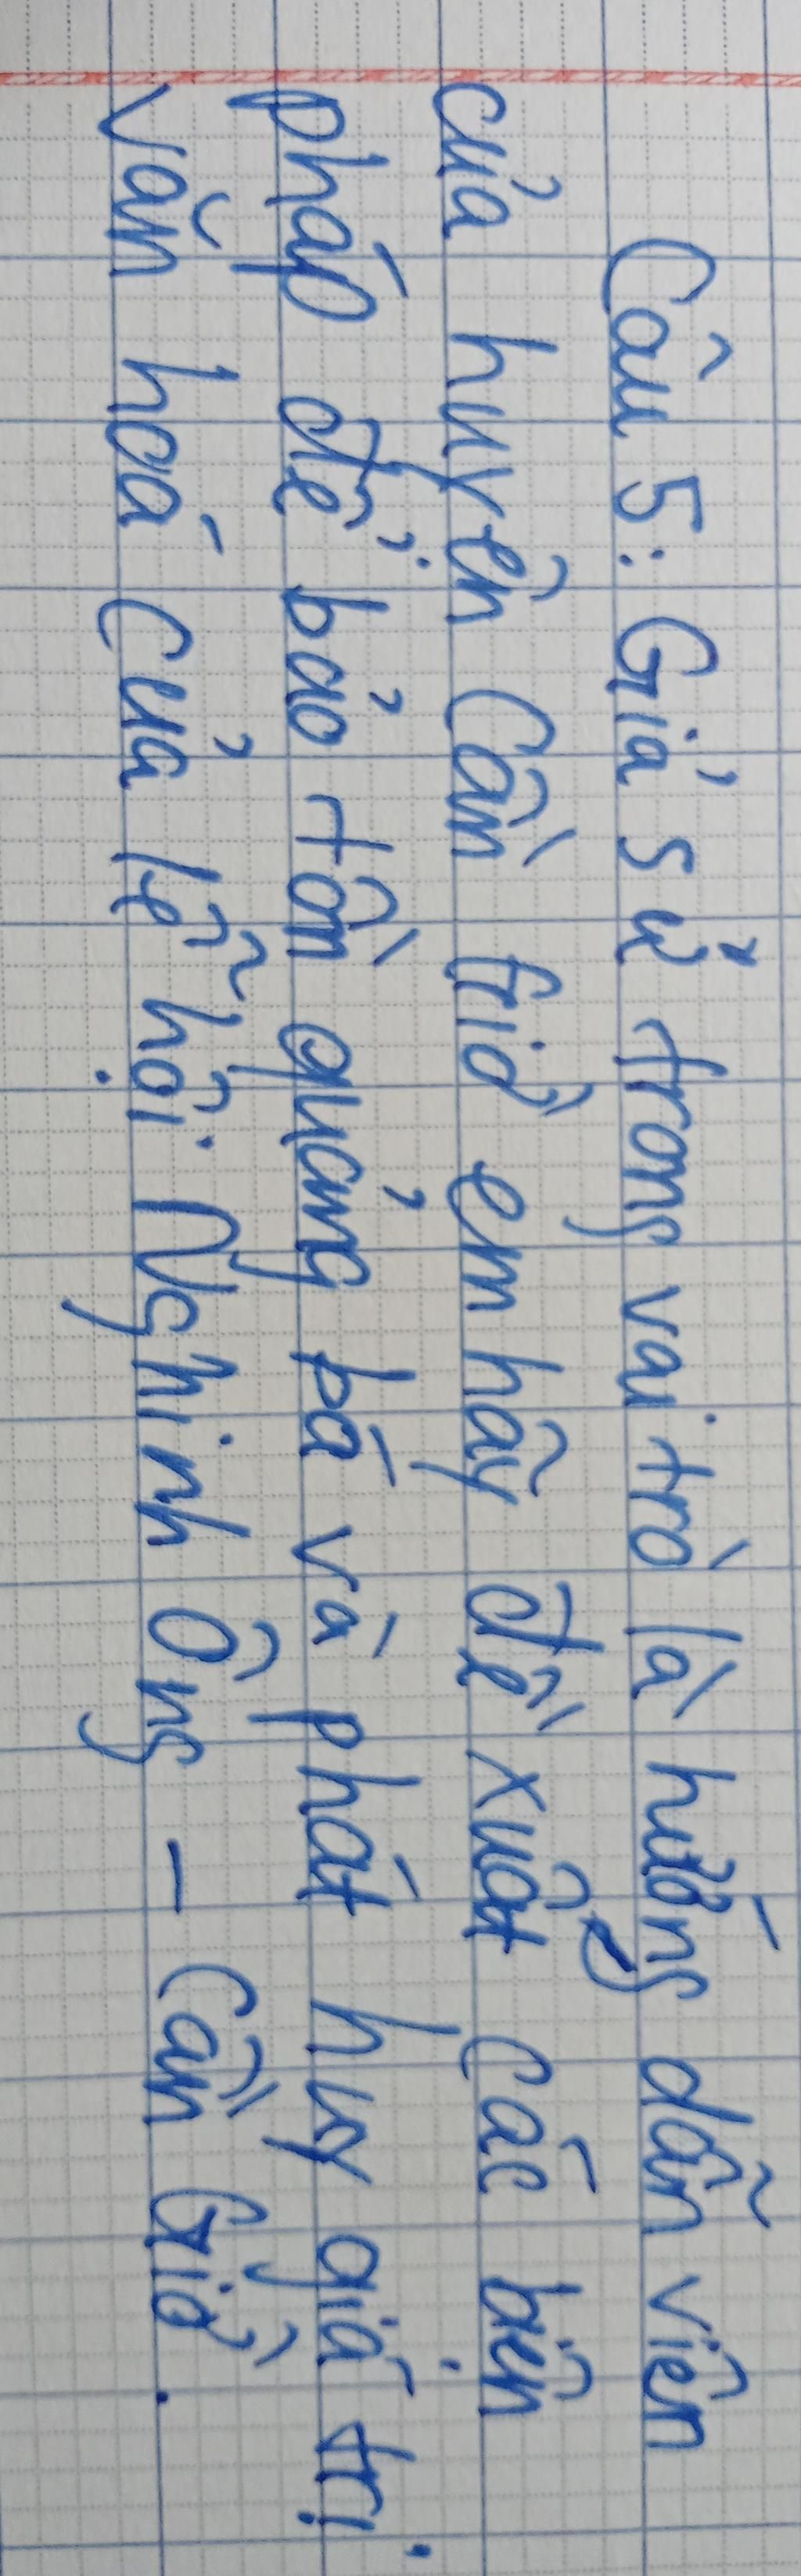 Câu 5: Giả sử trong vai trò là hướng dẫn viên
của huyện Cần giờ em hãy đề xuất các biện
pháp để bảo tồn quảng bá và phát huy giá trị
văn hoá của lễ hội Nghinh Ông - Cần Giờ.